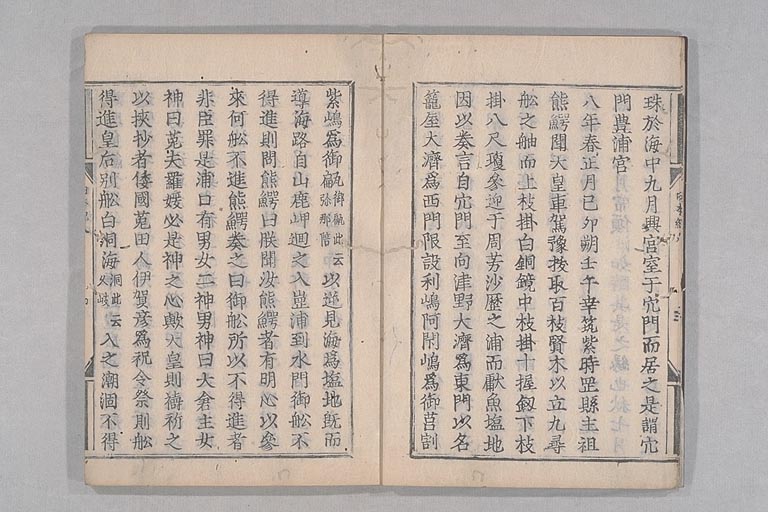 珠於海中九月興宮室于穴門而居之是謂穴
門豊浦宮
八年春正月己卯朔壬午幸筑紫時罡縣主祖
熊鰐聞天皇車駕豫拔取百枝賢木以立九尋
舩之舳而上枝掛白銅鏡中枝掛十握釼下枝
掛八尺瓊參迎于周芳沙麼之浦而獻魚塩地
因以奏言自穴門至向津野大濟爲東門以名
籠屋大濟爲西門限設利嶋阿閇嶋爲御筥割
紫嶋爲御甂御甂此云弥那陪以逆見海爲塩地既而
導海路自山鹿岬廻之入崑浦到水門御舩不
得進則問熊鰐曰朕聞汝熊鰐者有明心以參
來何舩不進熊鰐奏之曰御舩所以不得進者
非臣罪是浦口有男女二神男神曰大倉主女
神曰菟夫羅媛必是神之心歟天皇則禱祈之
以挾抄者倭國菟田人伊賀彦爲祝令祭則舩
得進皇后別舩自洞海洞此云久岐入之潮涸不得